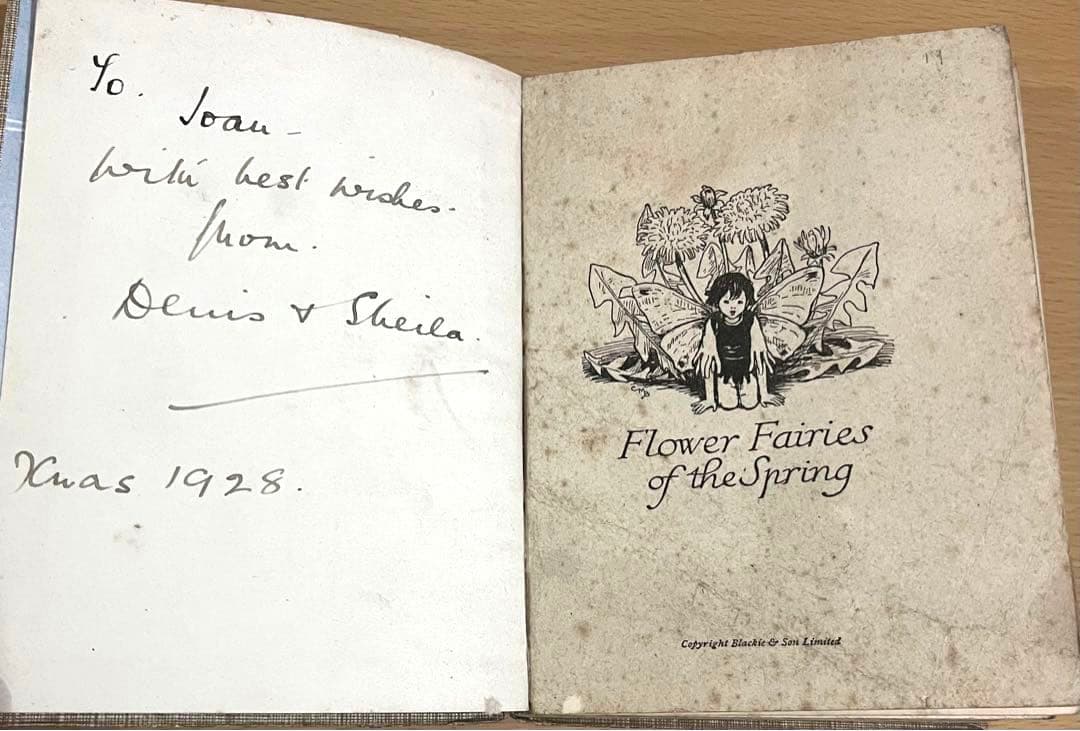 To. Joan -
with best wishes.
from.
Denis & Sheila.
Xmas 1928.
CMB
Flower Fairies
of the Spring
Copyright Blackie & Son Limited